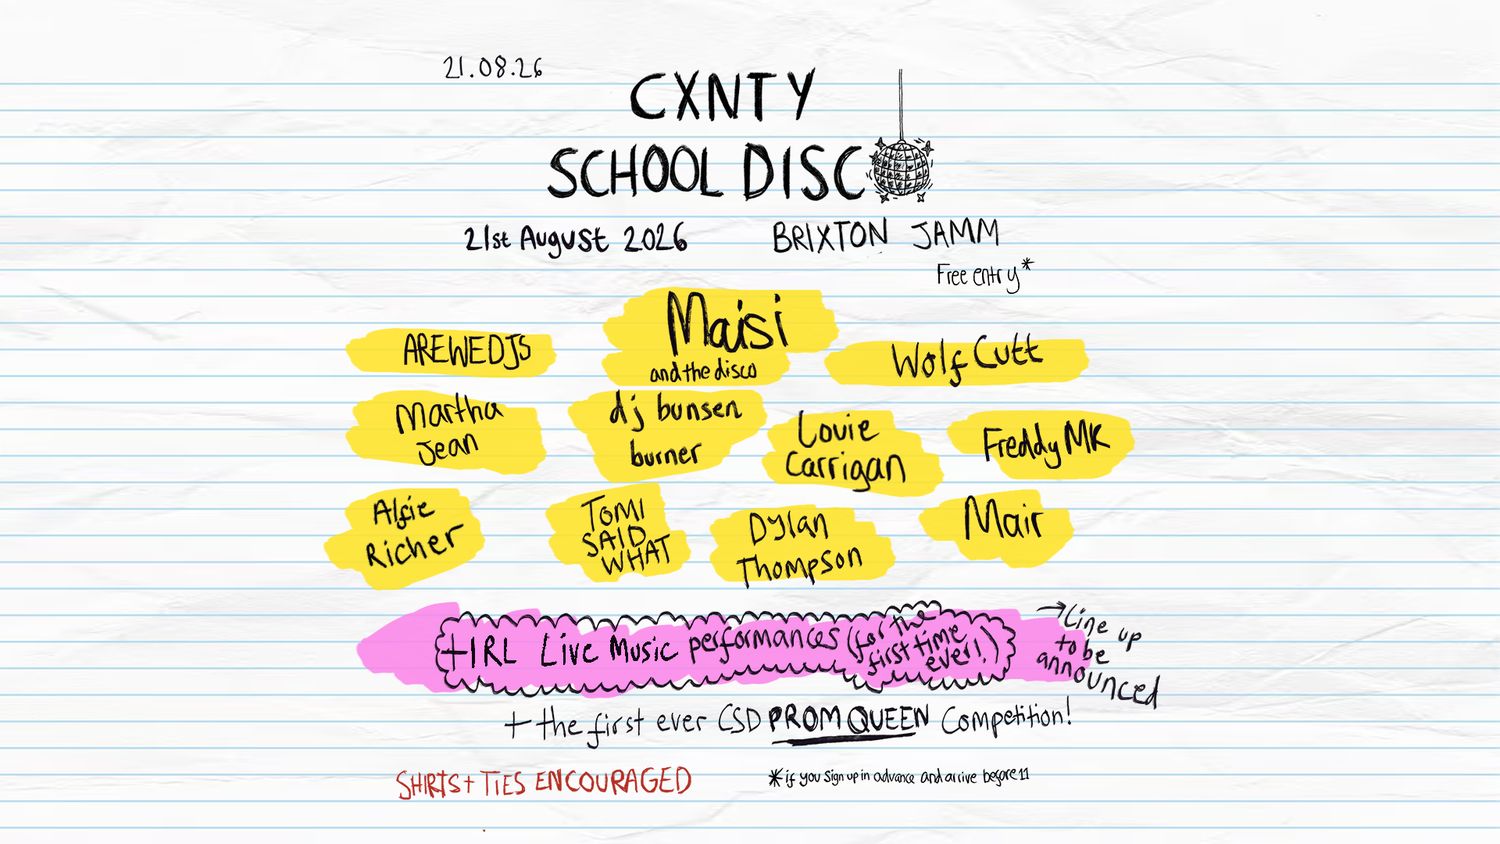 21.08.26
CXNTY
SCHOOL DISC
21st August 2026 BRIXTON JAMM
Free entry*
Maisi
and the disco
AREWEDJS
Wolf Cutt
Martha
Jean
dj bunsen
burner
Louie
Carrigan
Freddy MK
Alfie
Richer
TOMI
SAID
WHAT
Dylan
Thompson
Mair
+IRL Live Music performances (for the
first time
ever!)
→Line up
to be
announced
+ the first ever CSD PROM QUEEN Competition!
SHIRTS + TIES ENCOURAGED
*if you sign up in advance and arrive before 11